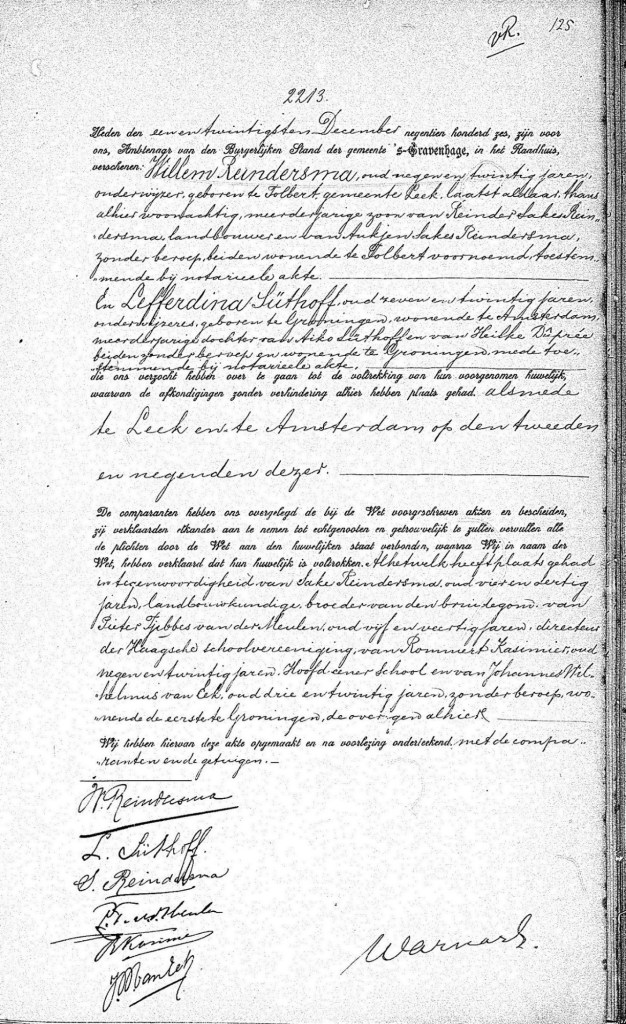 vR. 125
2213.
Heden den een en twintigsten December negentien honderd zes, zijn voor
ons, Ambtenaar van den Burgerlijken Stand der gemeente 's-Gravenhage, in het Raadhuis,
verschenen: Willem Reindersma, oud negen en twintig jaren,
onderwijzer, geboren te Tolbert, gemeente Leek, laatst aldaar, thans
alhier woonachtig, meerderjarige zoon van Reinder Sakes Rein„
„dersma, landbouwer en van Aukjen Sakes Reindersma,
zonder beroep, beiden wonende te Tolbert voornoemd, toestem„
„mende bij notarieele akte.
En Lefferdina Süthoff, oud zeven en twintig jaren,
onderwijzeres, geboren te Groningen, wonende te Amsterdam,
meerderjarige dochter van Aiko Süthoff en van Heilke Dûprée
beiden zonder beroep en wonende te Groningen, mede toe„
„stemmende bij notarieele akte,
die ons verzocht hebben over te gaan tot de voltrekking van hun voorgenomen huwelijk,
waarvan de afkondigingen zonder verhindering alhier hebben plaats gehad. alsmede
te Leek en te Amsterdam op den tweeden
en negenden dezer.
De comparanten hebben ons overgelegd de bij de Wet voorgeschreven akten en bescheiden,
zij verklaarden elkander aan te nemen tot echtgenooten en getrouwelijk te zullen vervullen alle
de plichten door de Wet aan den huwelijken staat verbonden, waarna Wij in naam der
Wet, hebben verklaard dat hun huwelijk is voltrokken. Alhetwelk heeft plaats gehad
in tegenwoordigheid van Sake Reindersma, oud vier en dertig
jaren, landbouwkundige, broeder van den bruidegom, van
Pieter Tjebbes van der Meulen, oud vijf en veertig jaren, directeur
der Haagsche schoolvereeniging, van Rommert Kasimier, oud
negen en twintig jaren, Hoofd eener School en van Johannes Wil„
„helmus van Eek, oud drie en twintig jaren, zonder beroep, wo„
„nende de eerste te Groningen, de overigen alhier
Wij hebben hiervan deze akte opgemaakt en na voorlezing onderteekend met de compa„
„ranten en de getuigen.
W. Reindersma
L. Süthoff.
S. Reindersma
P. T. v. d. Meulen
J W van Eek
Warnars.